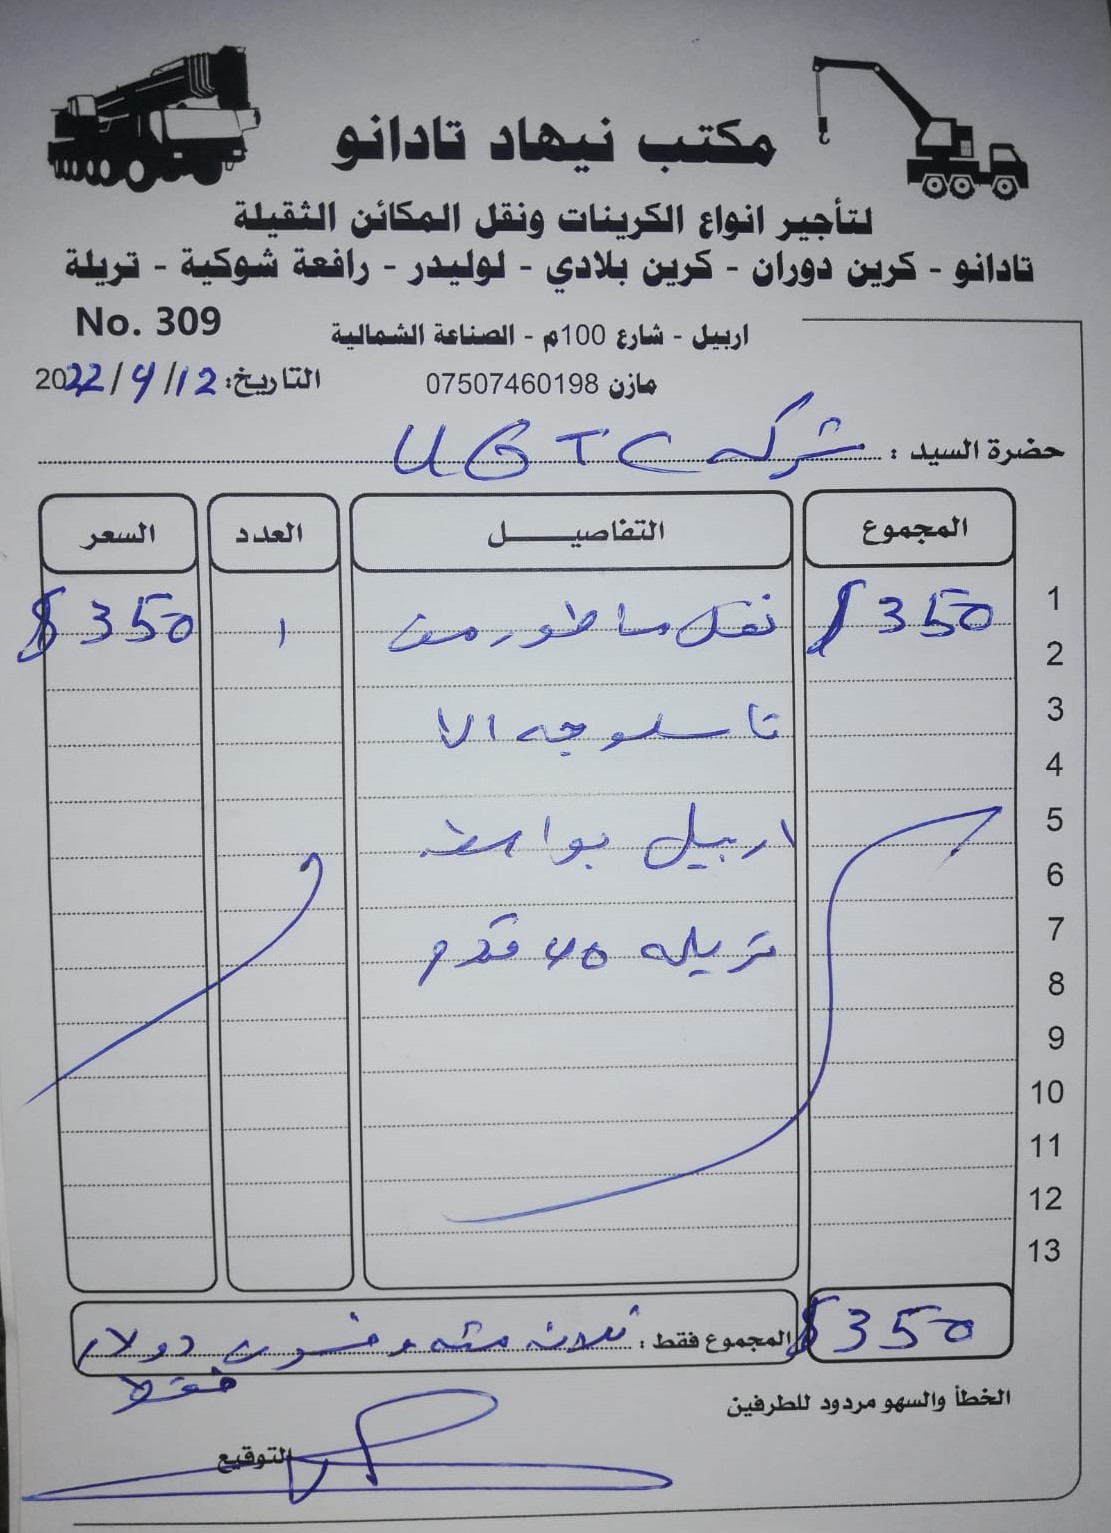 مكتب نيهاد تادانو
لتأجير انواع الكرينات ونقل المكائن الثقيلة
تادانو - كرين دوران - كرين بلادي - لوليدر - رافعة شوكية - تريلة
No. 309
اربيل - شارع 100م - الصناعة الشمالية
مازن 07507460198
التاريخ: 2022/4/12
حضرة السيد : شركه UGTC
المجموع التفاصيـــل العدد السعر
1
$350 نقل ماطور من ١ $350
2
3
تاسلوجه الا
4
5
اربيل بواسطه
6
7
تريله ٤٥ قدم
8
9
10
11
12
13
$350
المجموع فقط : ثلاثه مئه و خمسون دولار
فقط
الخطأ والسهو مردود للطرفين
التوقيع